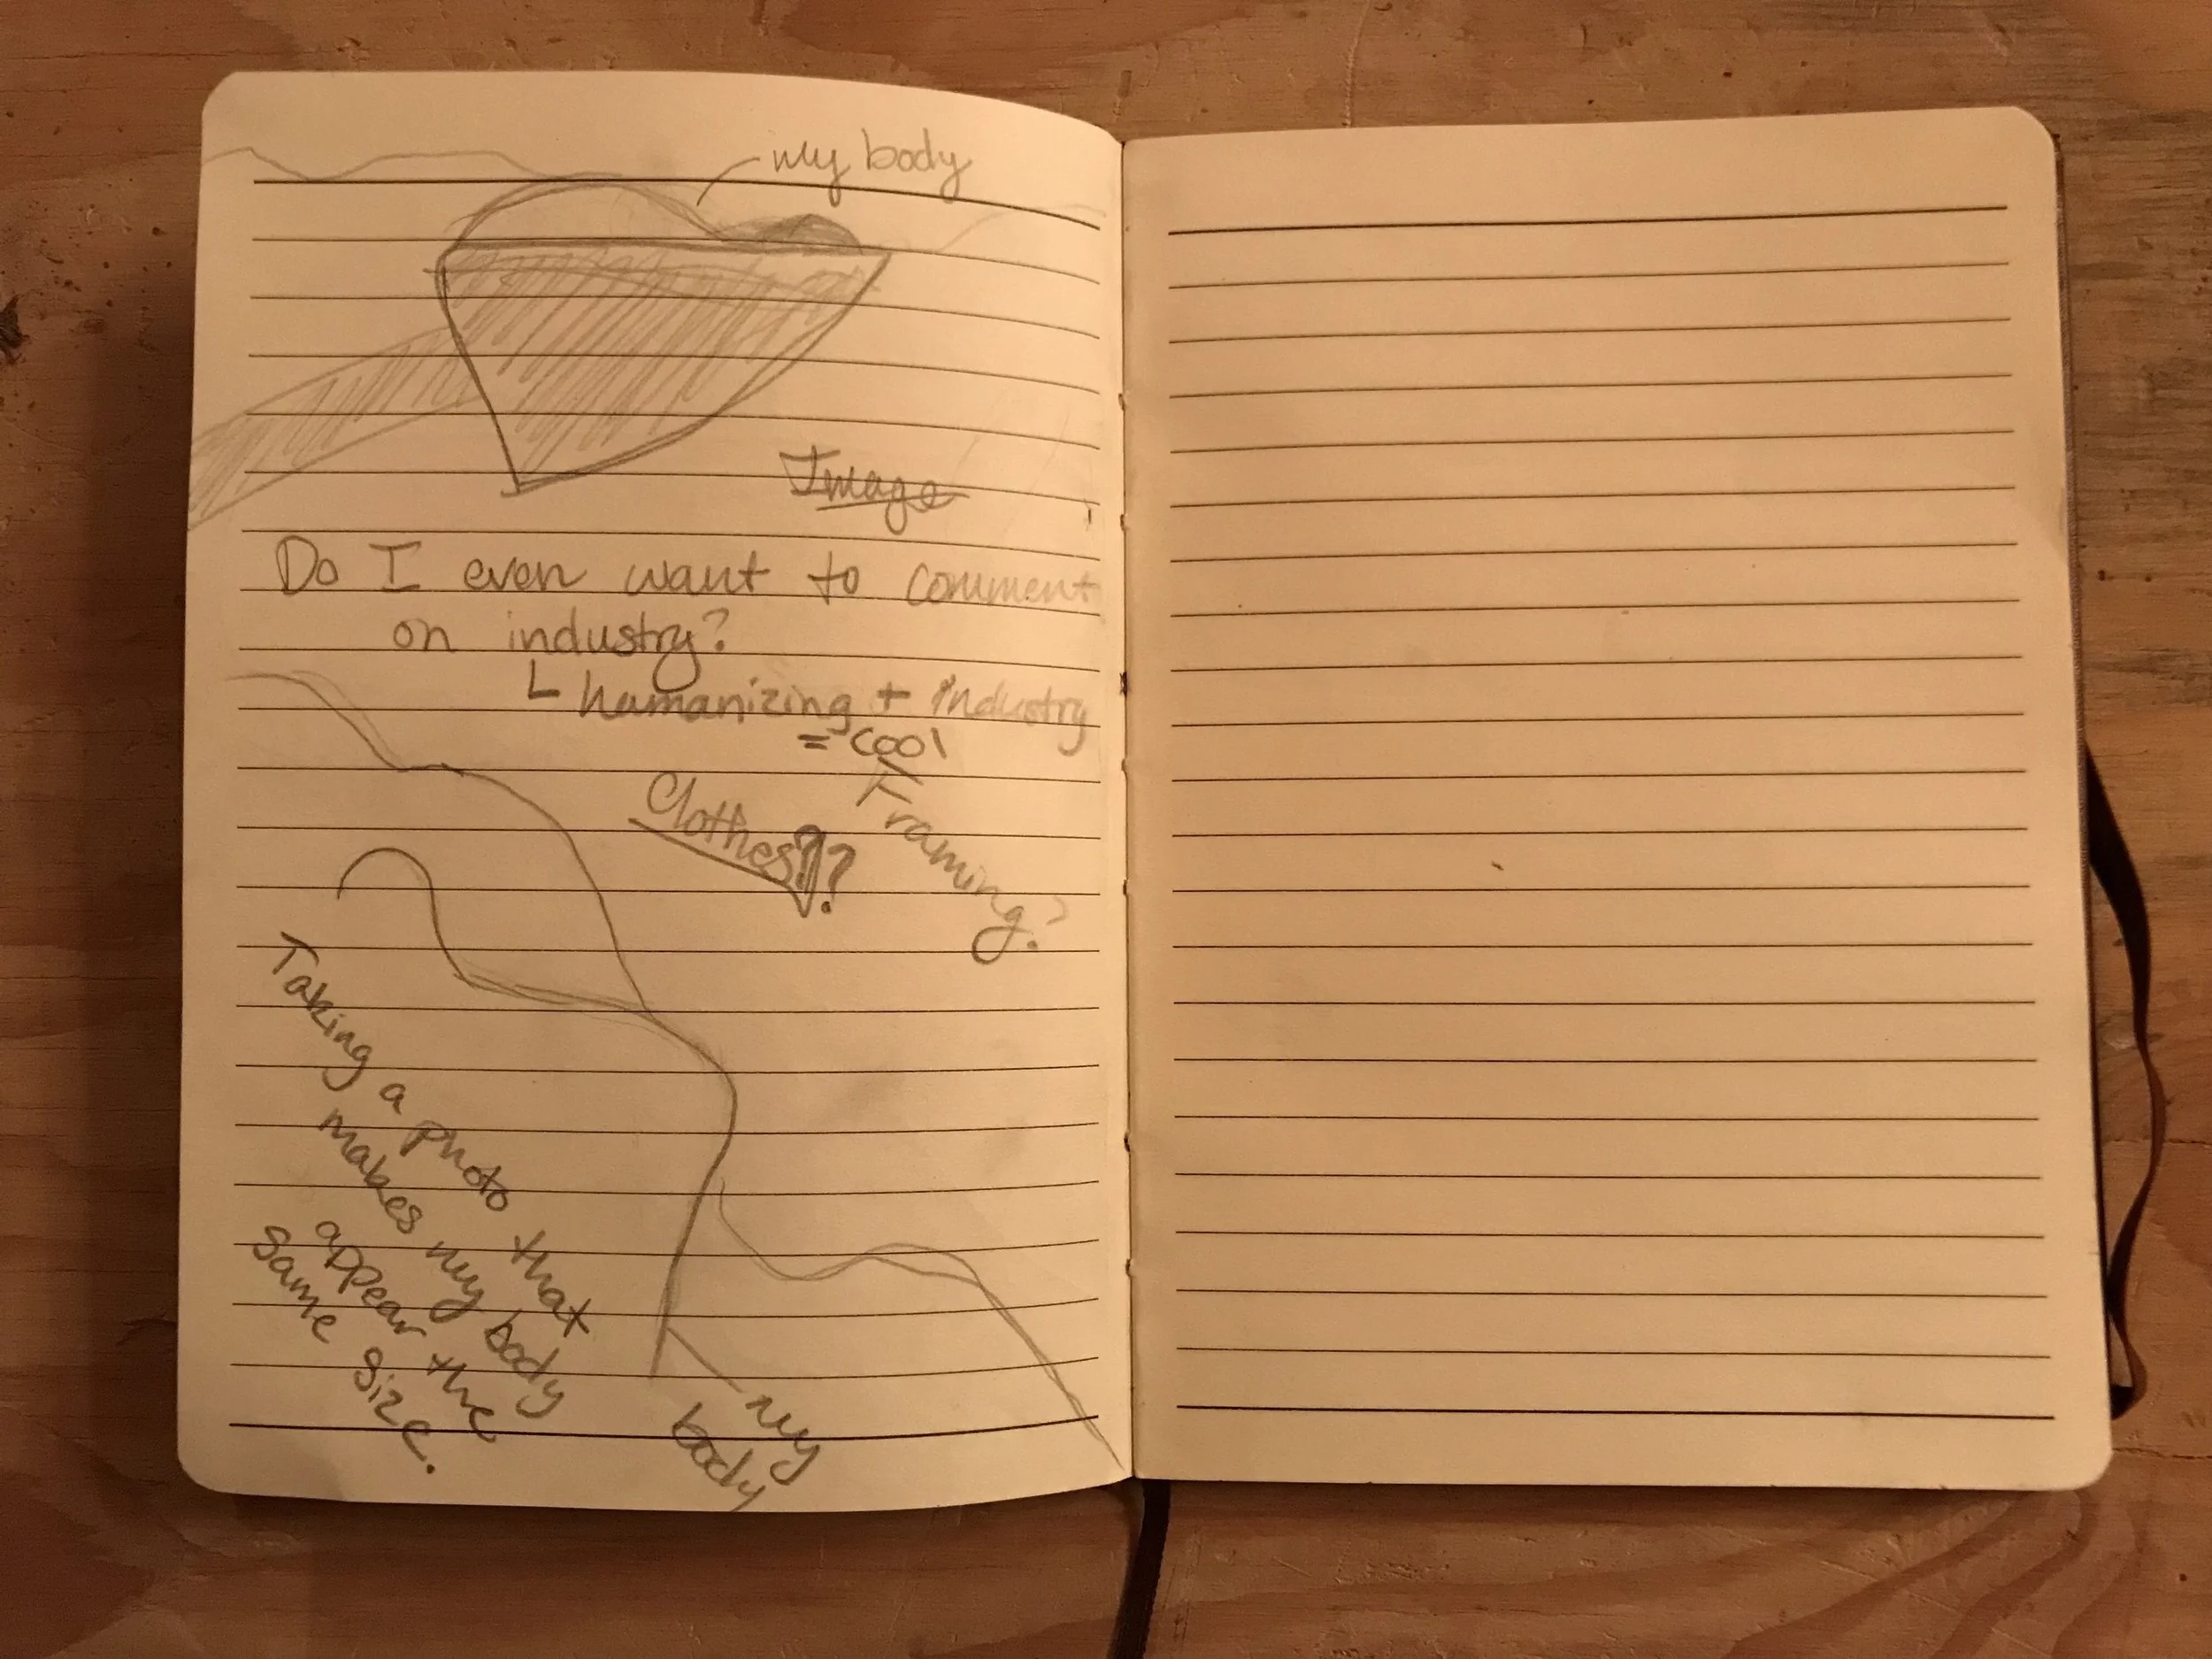 my body
Image
Do I even want to comment
on industry?
humanizing + industry
= cool
Framing?
Clothes??
Taking a photo that
makes my body
appear the
same size.
my
body